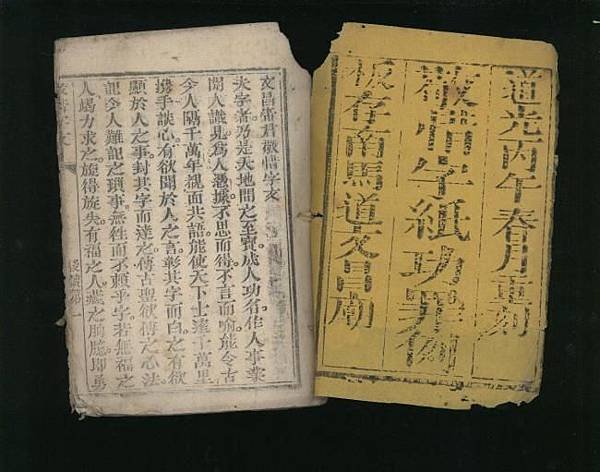 道光丙午春月重刻
敬惜字紙功罪例
板存南馬道文昌廟
文昌帝君敬惜字文
夫字者乃是天地間之至寶。成人功名。佐人事業
開人識見。爲人憑據。不思而得。不言而喻。能令古
今人隔千萬年覿面共語。能使天下士遠千萬里
攜手談心。有欲聞於人之言。彰其字而白之。有欲
顯於人之事。封其字而達之。傳古聖欲傳之心法。
記今人難記之瑣事。無往而不賴乎字。若無福之
人竭力求之。旋得旋失。有福之人。藏之胸臆。卽勇
惜字文